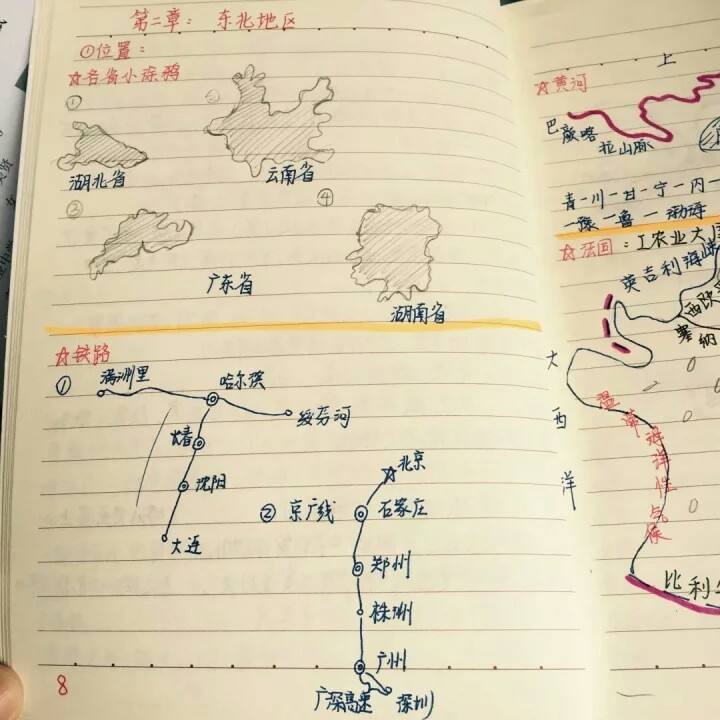 第二章: 东北地区
①位置:
☆各省小涂鸦
①
②
湖北省
云南省
③
④
广东省
湖南省
☆铁路
①
满洲里
哈尔滨
绥芬河
长春
沈阳
大连
② 京广线
北京
石家庄
郑州
株洲
广州
广深高速
深圳
8
上
☆黄河
巴颜喀
拉山脉
青一川一甘一宁一内一
一豫一鲁一渤海
☆法国: 工农业大
英吉利海峡
西欧
塞纳
大
西
洋
温
带
海
洋
性
气
候
比利